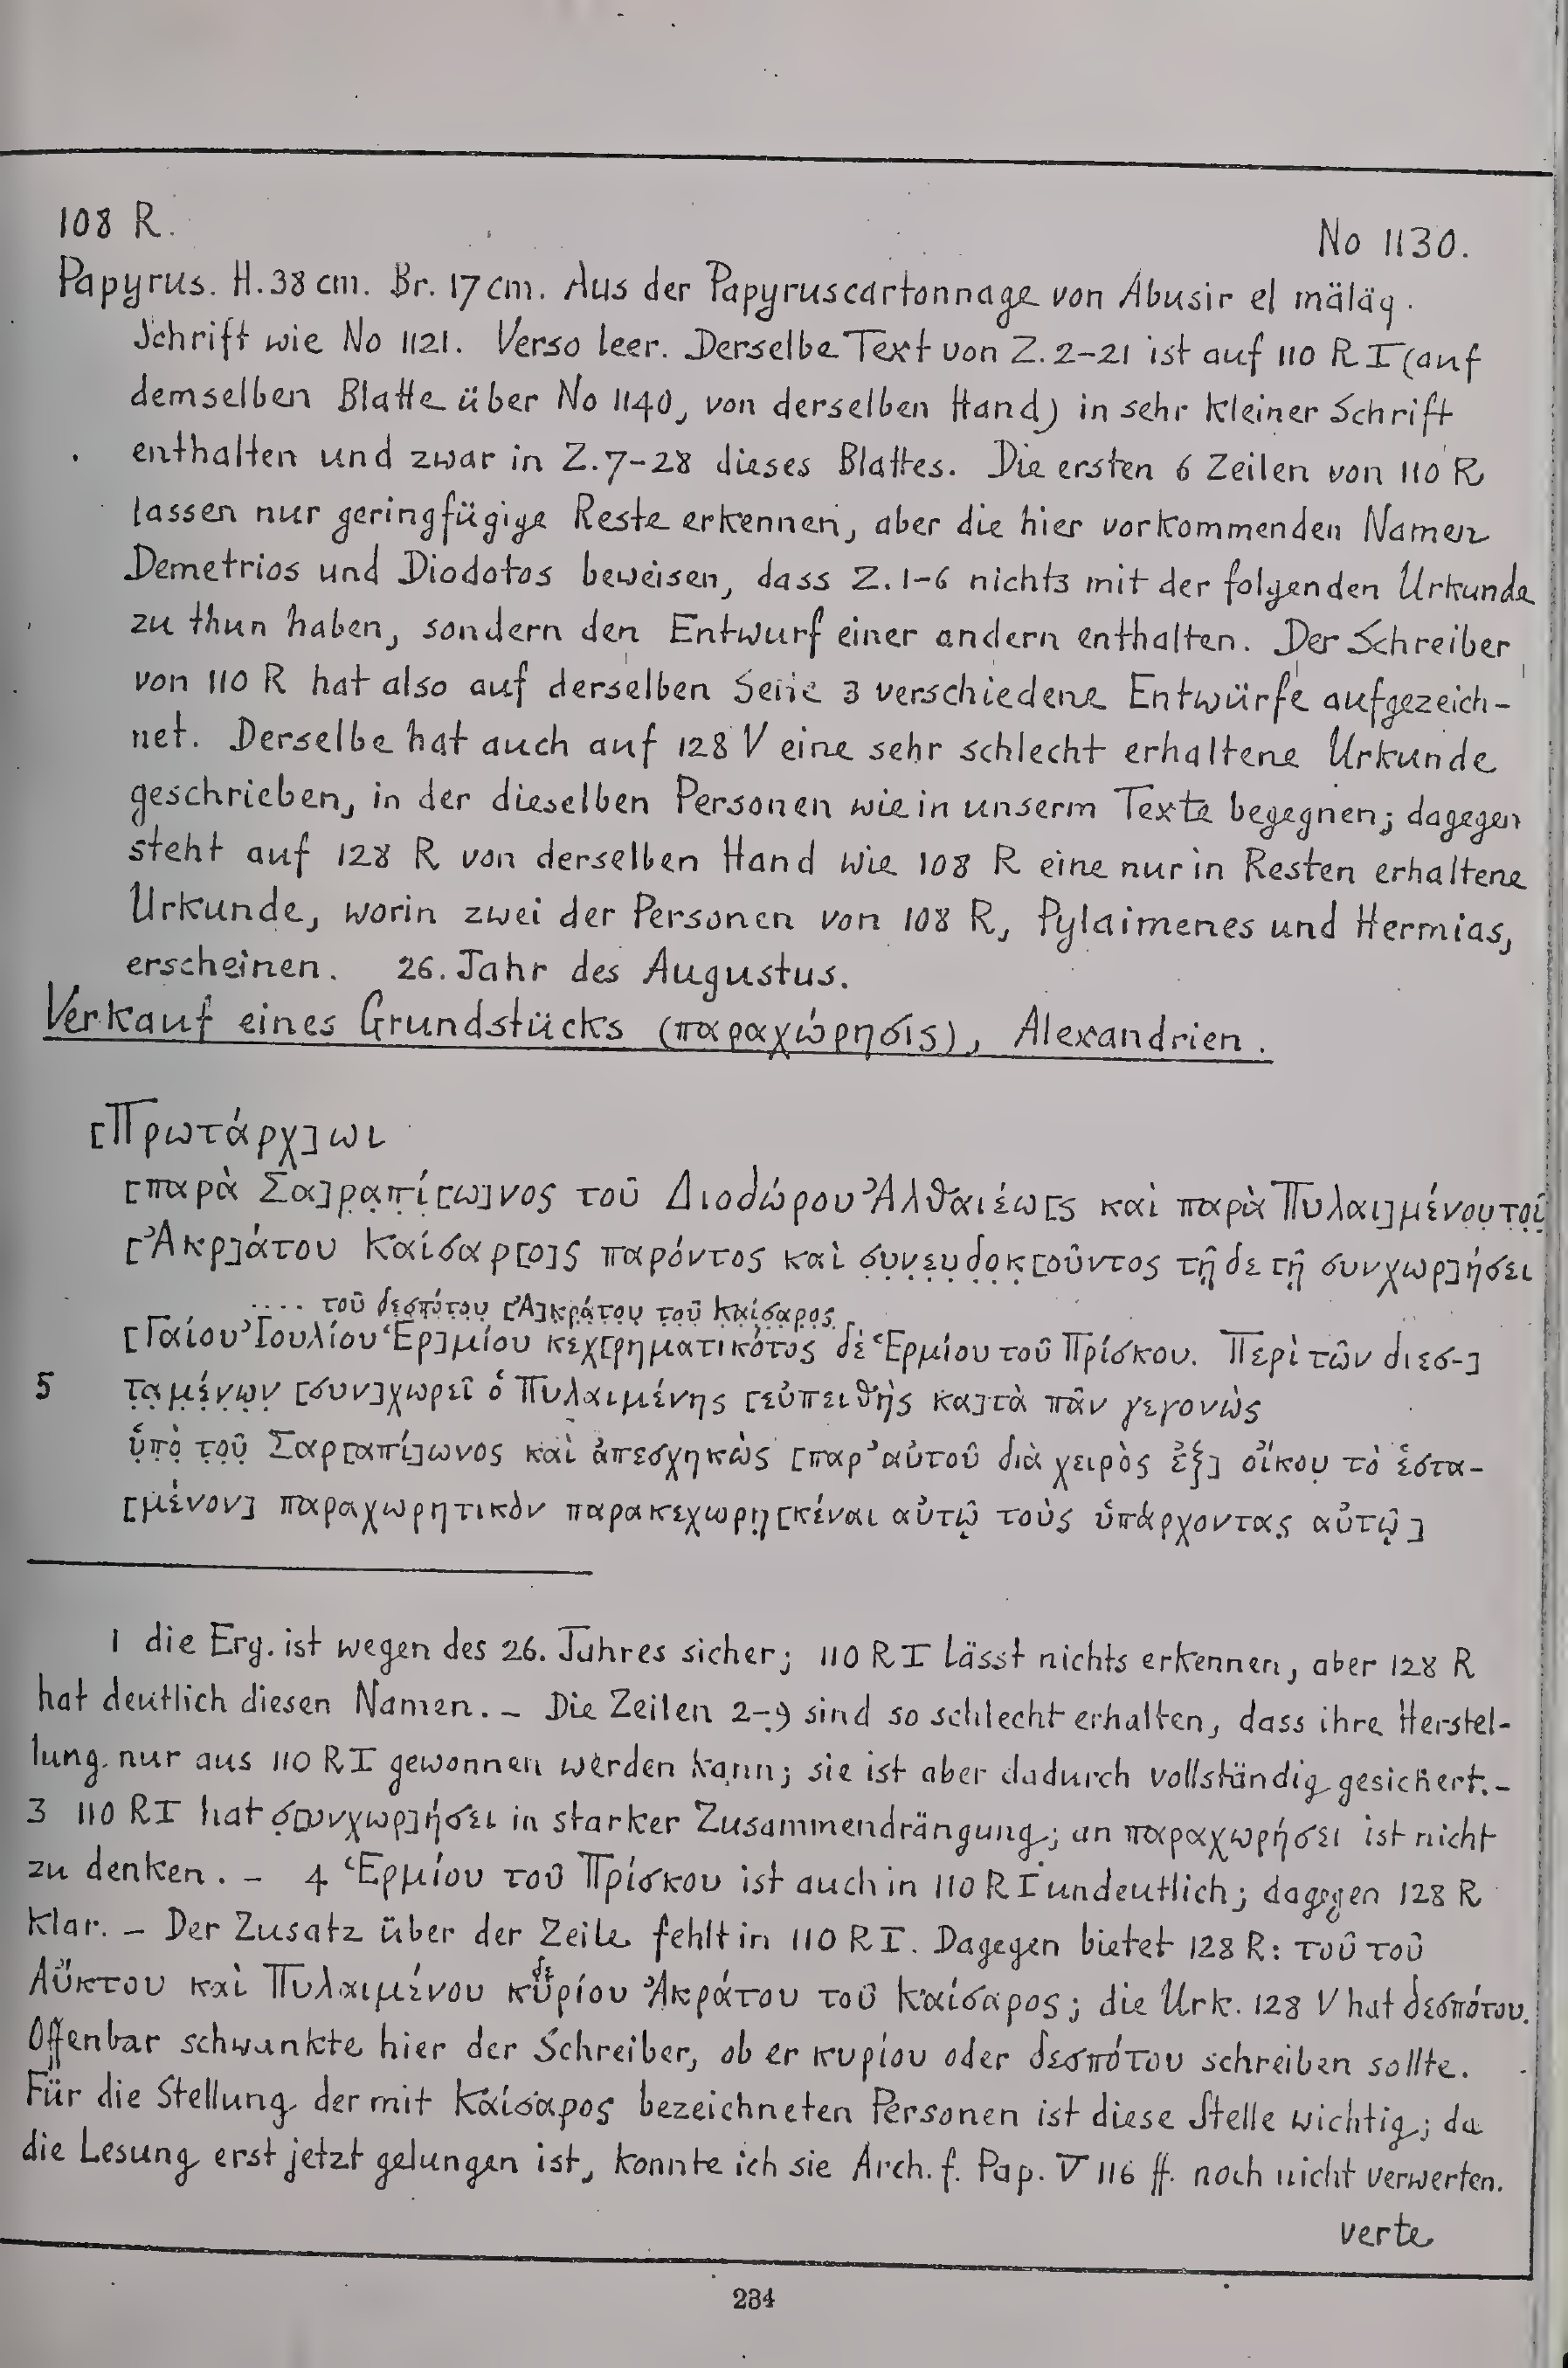 108 R.
No 1130.
Papyrus. H. 38 cm. Br. 17 cm. Aus der Papyruscartonnage von Abusir el mäläq.
Schrift wie No 1121. Verso leer. Derselbe Text von Z. 2-21 ist auf 110 R I (auf
demselben Blatte über No 1140, von derselben Hand) in sehr kleiner Schrift
enthalten und zwar in Z. 7-28 dieses Blattes. Die ersten 6 Zeilen von 110 R
lassen nur geringfügige Reste erkennen, aber die hier vorkommenden Namen
Demetrios und Diodotos beweisen, dass Z. 1-6 nichts mit der folgenden Urkunde
zu thun haben, sondern den Entwurf einer andern enthalten. Der Schreiber
von 110 R hat also auf derselben Seite 3 verschiedene Entwürfe aufgezeich-
net. Derselbe hat auch auf 128 V eine sehr schlecht erhaltene Urkunde
geschrieben, in der dieselben Personen wie in unserm Texte begegnen; dagegen
steht auf 128 R von derselben Hand wie 108 R eine nur in Resten erhaltene
Urkunde, worin zwei der Personen von 108 R, Pylaimenes und Hermias,
erscheinen. 26. Jahr des Augustus.
Verkauf eines Grundstücks (παραχώρησις), Alexandrien.
[Πρωτάρχ]ωι
[παρὰ Σα]ρ̣α̣π̣ί̣[ω]νος τοῦ Διοδώρου Ἀλθαιέω[ς καὶ παρὰ Πυλαι]μένο̣υ̣ το̣ῦ̣
[Ἀκρ]άτου Καίσαρ[ο]ς παρόντος καὶ σ̣υ̣ν̣ε̣υ̣δ̣ο̣κ̣[οῦντος τῇδε τῇ συνχωρ]ήσει
.... τοῦ δ̣ε̣σ̣π̣ό̣τ̣ο̣υ̣ [Ἀ]κ̣ρ̣ά̣τ̣ο̣υ̣ τ̣ο̣ῦ̣ Κ̣α̣ί̣σ̣α̣ρ̣ο̣ς̣
[Γαίου Ἰουλίου Ἑρ]μίου κεχ[ρηματικότος δὲ Ἑρμίου τοῦ Πρίσκου. Περὶ τῶν διεσ-]
5 τ̣α̣μ̣έ̣ν̣ω̣ν̣ [συν]χωρεῖ ὁ Πυλαιμένης [εὐπειθὴς κα]τὰ πᾶν γεγονὼς
ὑ̣π̣ὸ̣ τ̣ο̣ῦ̣ Σαρ[απί]ωνος καὶ ἀπεσχηκὼς [παρ’ αὐτοῦ διὰ χειρὸς ἐξ] οἴκου τὸ ἑστα-
[μένον] παραχωρητικὸν παρακεχωρη̣[κέναι αὐτῷ τοὺς ὑπάρχοντας αὐτῷ]
1 die Erg. ist wegen des 26. Jahres sicher; 110 R I lässt nichts erkennen, aber 128 R
hat deutlich diesen Namen. – Die Zeilen 2-9 sind so schlecht erhalten, dass ihre Herstel-
lung nur aus 110 R I gewonnen werden kann; sie ist aber dadurch vollständig gesichert. –
3 110 R I hat σ̣[υνχωρ]ήσει in starker Zusammendrängung; an παραχωρήσει ist nicht
zu denken. – 4 Ἑρμίου τοῦ Πρίσκου ist auch in 110 R I undeutlich; dagegen 128 R
klar. – Der Zusatz über der Zeile fehlt in 110 R I. Dagegen bietet 128 R: τοῦ τοῦ
δε
Αὔκτου καὶ Πυλαιμένου κυρίου Ἀκράτου τοῦ Καίσαρος; die Urk. 128 V hat δεσπότου.
Offenbar schwankte hier der Schreiber, ob er κυρίου oder δεσπότου schreiben sollte.
Für die Stellung der mit Καίσαρος bezeichneten Personen ist diese Stelle wichtig; da
die Lesung erst jetzt gelungen ist, konnte ich sie Arch. f. Pap. V 116 ff. noch nicht verwerten.
verte
234